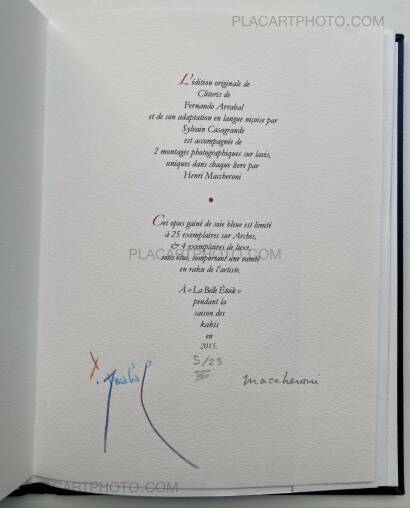 PLACARTPHOTO.COM
L'édition originale de
Clitoris de
Fernando Arrabal
et de son adaptation en langue niçoise par
Sylvain Casagrande
est accompagnée de
2 montages photographiques sur lavis,
uniques dans chaque livre par
Henri Maccheroni
Cet opus gainé de soie bleue est limité
à 25 exemplaires sur Arches,
& 4 exemplaires de luxe,
PLACARTPHOTO.COM
sous étui, comportant une vanité
en raku de l'artiste.
À « La Belle Étoile »
pendant la
saison des
kakis
en
2015.
5/25
Maccheroni
PLACARTPHOTO.COM